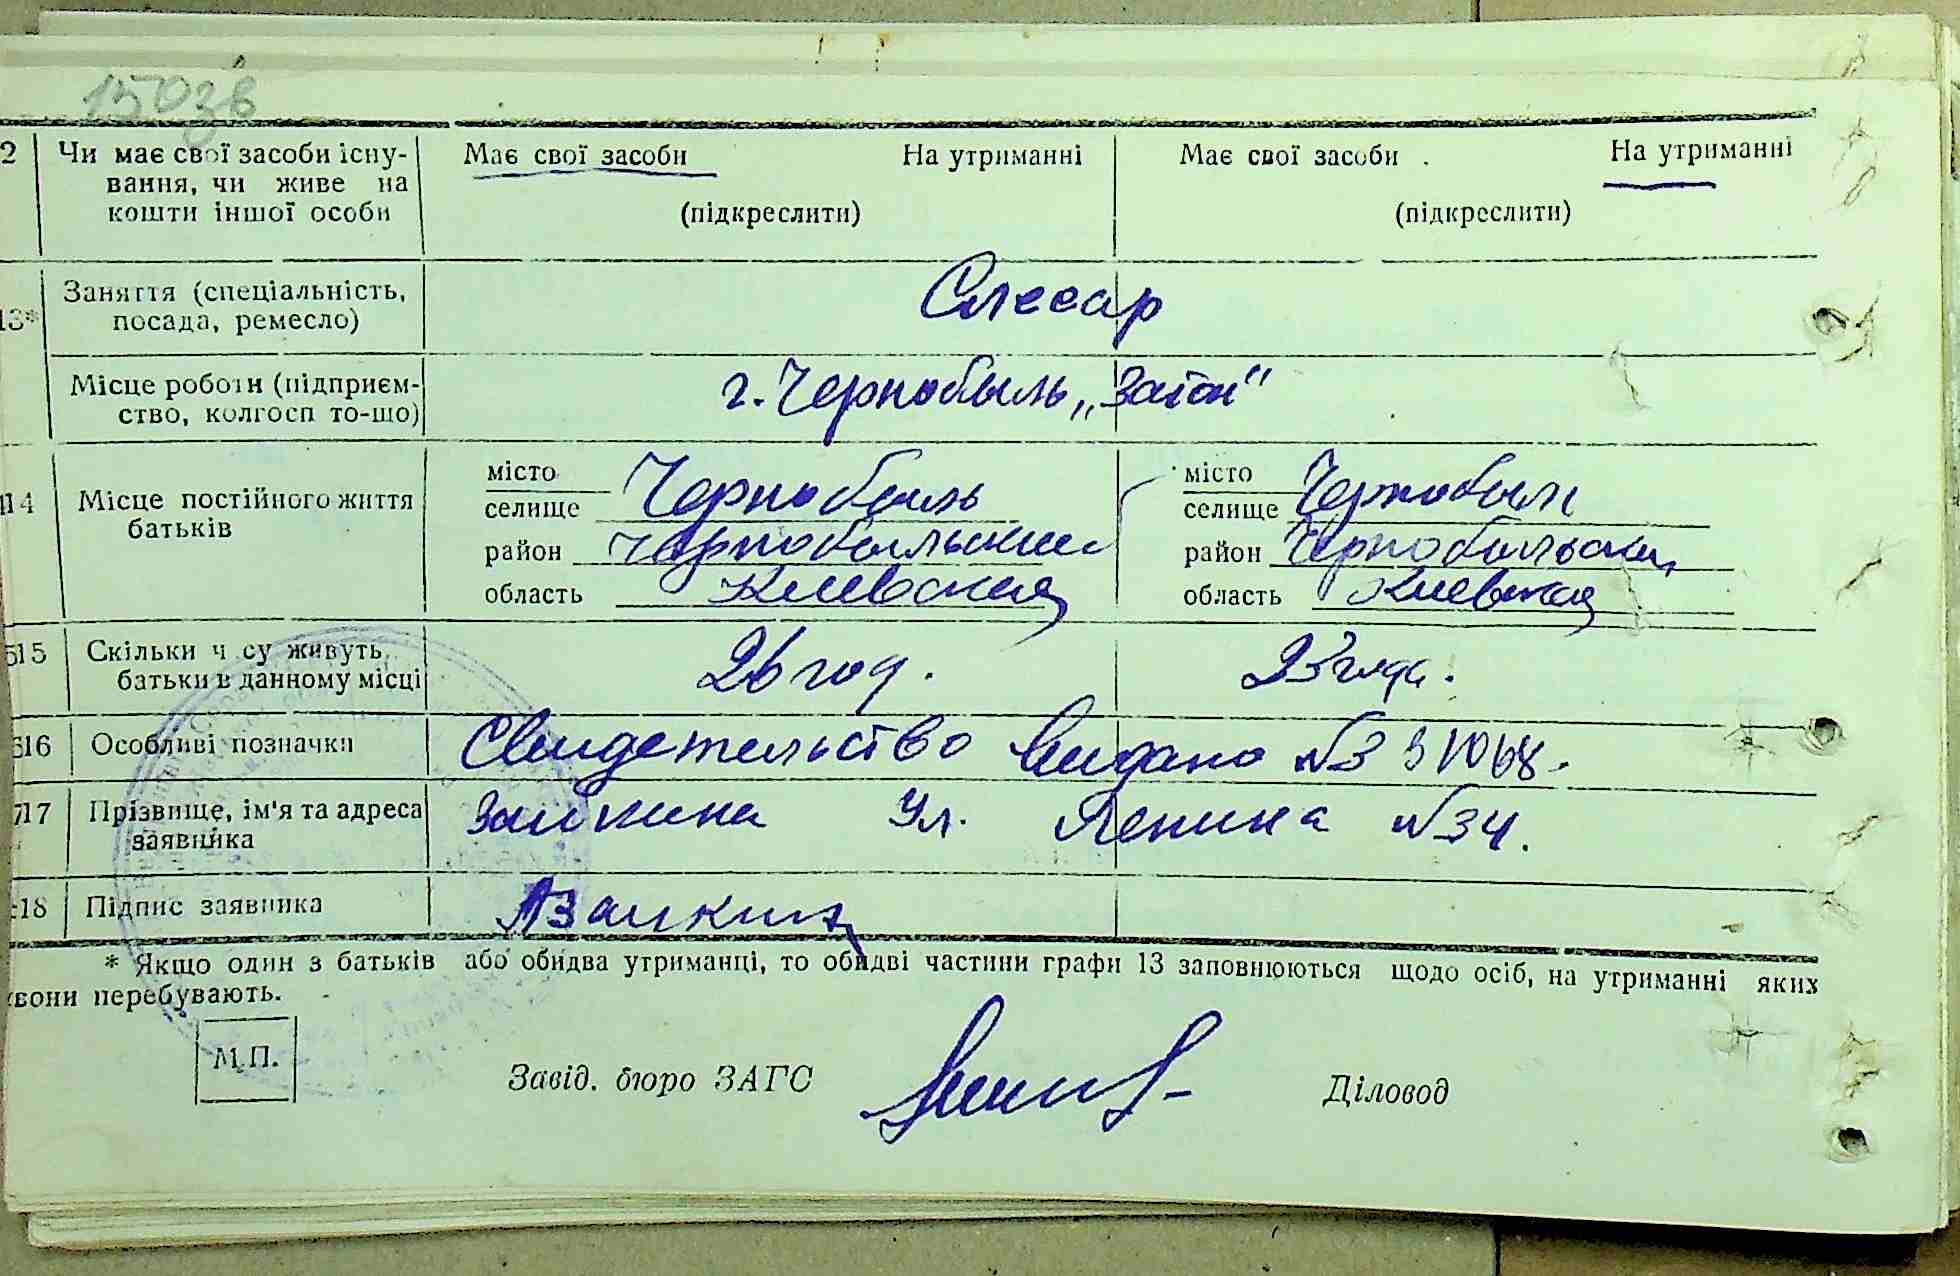 150зв
2 Чи має свої засоби існу- Має свої засоби На утриманні Має свої засоби На утриманні
вання, чи живе на
кошти іншої особи (підкреслити) (підкреслити)
13* Заняття (спеціальність,
посада, ремесло) Слесар
Місце роботи (підприєм-
ство, колгосп то-що) г. Чернобыль „Затон"
14 Місце постійного життя
батьків
місто Чернобыль місто Чернобыль
селище селище
район Чернобыльский район Чернобыльский
область Киевская область Киевская
15 Скільки ч су живуть
батьки в данному місці 26 год. 23 года.
16 Особливі позначки Свидетельство выдано №
17 Прізвище, ім'я та адреса
заявника Ул. Ленина №34.
18 Підпис заявника
* Якщо один з батьків або обидва утриманці, то обидві частини графи 13 заповнюються щодо осіб, на утриманні яких
вони перебувають.
М.П.
Завід. бюро ЗАГС Діловод